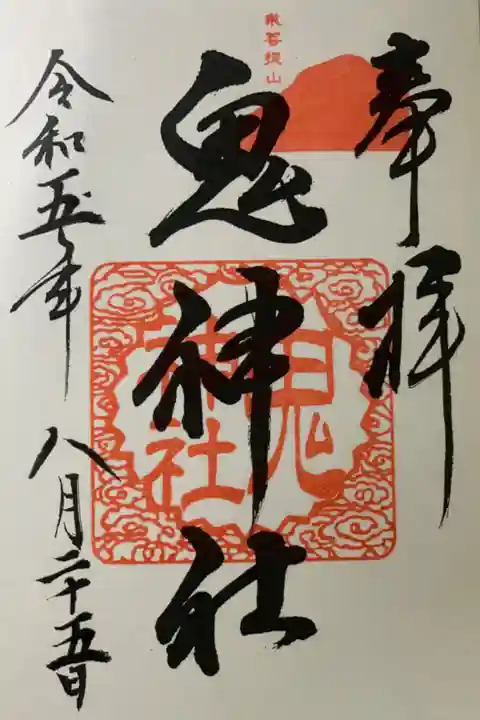 奉拝
東菩提山
鬼神社
鬼
神社
令和五年 八月二十五日